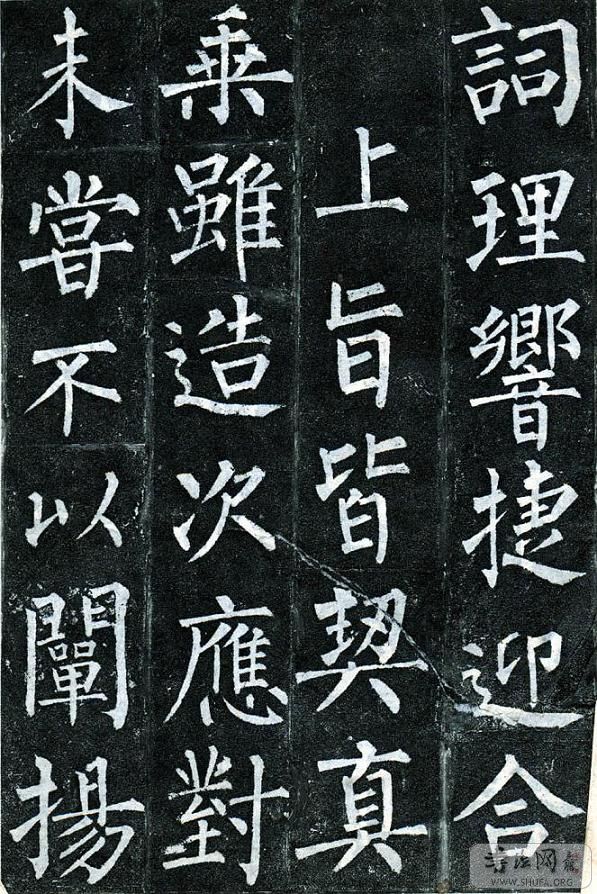 詞理響捷迎合
上旨皆契真
乘雖造次應對
未嘗不以闡揚
書法网
WWW.SHUFA.ORG